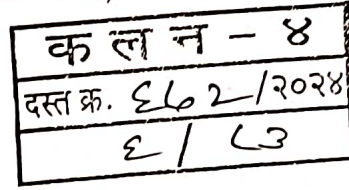 क ल न - ४
दस्त क्र. ६७२/२०२४
६/८३